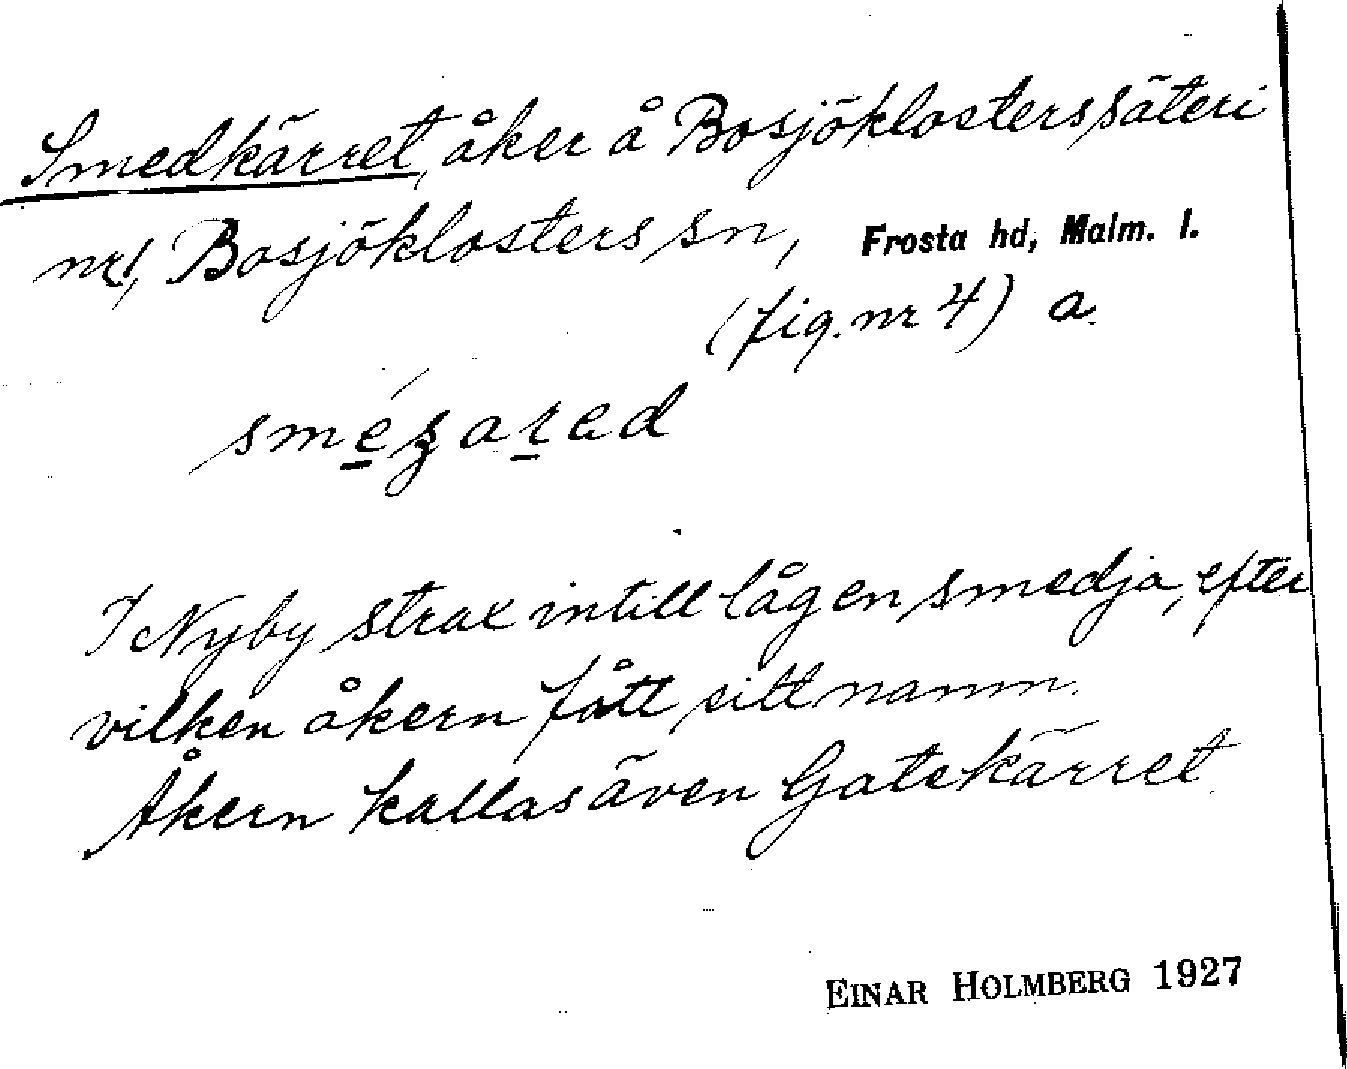 Smedkärret, åker å Bosjöklosters säteri
nr 1, Bosjöklosters sn, Frosta hd, Malm. l.
(fig. nr 4) a.
I Nyby strax intill låg en smedja, efter
vilken åkern fått sitt namn.
Åkern kallas även Gatekärret
EINAR HOLMBERG 1927